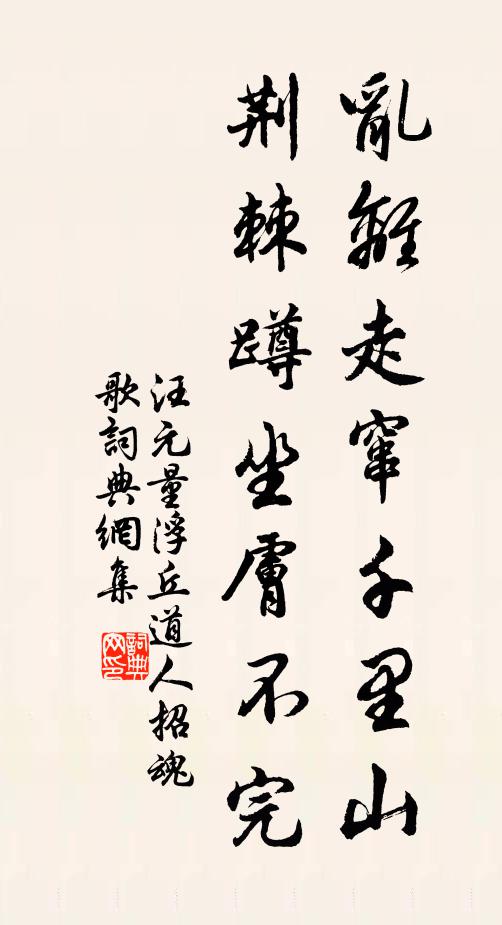 亂離走竄千里山
荆棘蹲坐膚不完
汪元量浮丘道人招魂
歌詞典網集
詞典網印